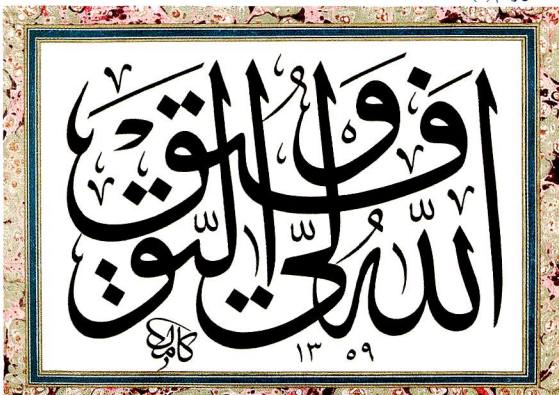 الله ولي التوفيق
كامل
١٣٥٩